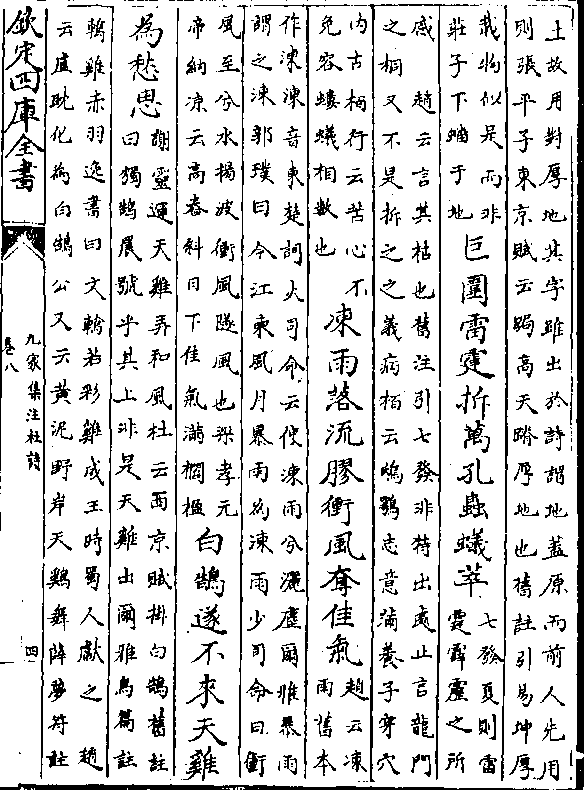 土故用對厚地其字雖出於詩謂地蓋原而前人先用
則張平子東京賦云跼高天蹐厚地也舊註引易坤厚
載物似是而非
莊子下蝕于地
巨圍雷霆拆萬孔蟲蟻萃
七發夏則雷
霆霹靂之所
感 趙云言其枯也舊注引七發非特出處止言龍門
之桐又不是拆之之義病栢云鴟鴞志意滿養子穿穴
内古栢行云苦心不
免容螻蟻相數也
凍雨落流膠衝風奪佳氣
趙云凍
雨舊本
作涷涷音東楚詞大司命云使涷雨兮灑塵爾雅暴雨
謂之涷郭璞曰今江東風月暴雨為涷雨少司命曰衝
風至兮水揚波衝風隧風也梁孝元
帝納凉云高舂斜日下佳氣滿櫚楹
白鵠遂不來天雞
為愁思
謝靈運天雞弄和風杜云西京賦掛白鵠舊註
曰獨鵠晨號乎其上非是天雞出爾雅鳥篇註
鶾雞赤羽逸書曰文鶾若彩雞成王時蜀人獻之 趙
云盧耽化為白鵠公又云黄泥野岸天鷄舞薛夢符註
欽定四庫全書
九家集注杜詩
卷八
四